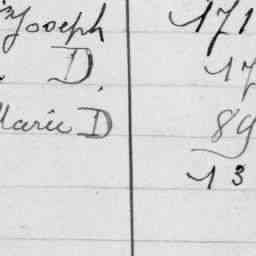 Joseph 171
D. 17
Marie D 89
13